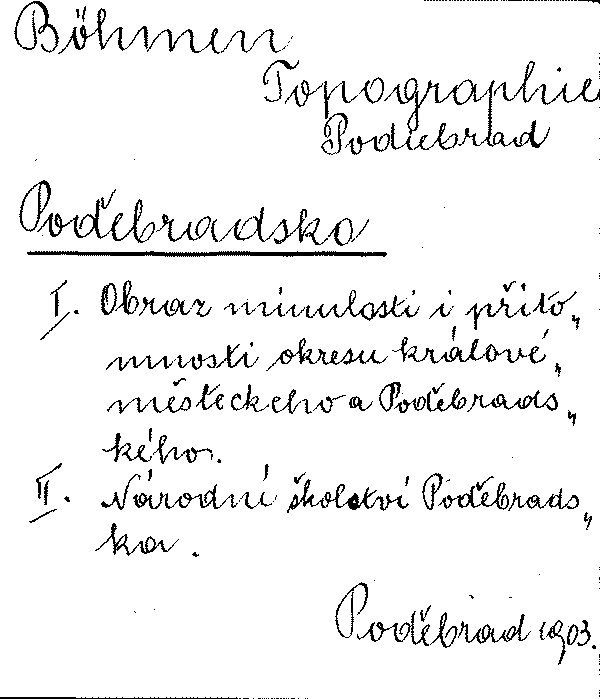 Böhmen
Topographie
Podiebrad
Poděbradsko
I. Obraz minulosti i příto„
mnosti okresu králové„
městeckeho a Poděbrads„
kého.
II. Národní školství Poděbrads„
ka.
Poděbrad 1903.